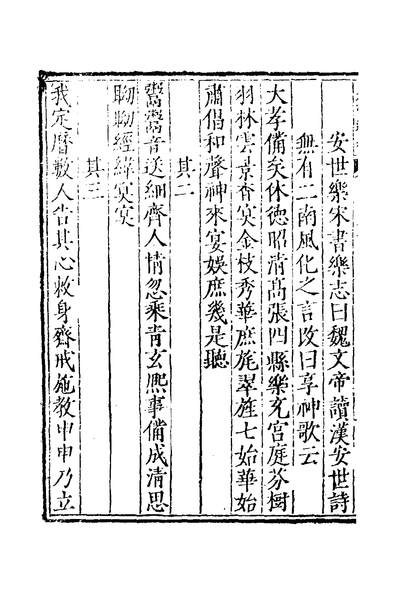 安世樂宋書樂志曰魏文帝讀漢安世詩
無有二南風化之言改曰享神歌云
大孝備矣休德昭清高張四縣樂充宮庭芬樹
羽林雲景杳冥金枝秀華庶旄翠旌七始華始
肅倡和聲神來宴娭庶幾是聽
其二
鬻鬻音送細齊人情忽乘青玄熈事備成清思
眑眑經緯冥冥
其三
我定曆數人告其心敕身齊戒施教申申乃立